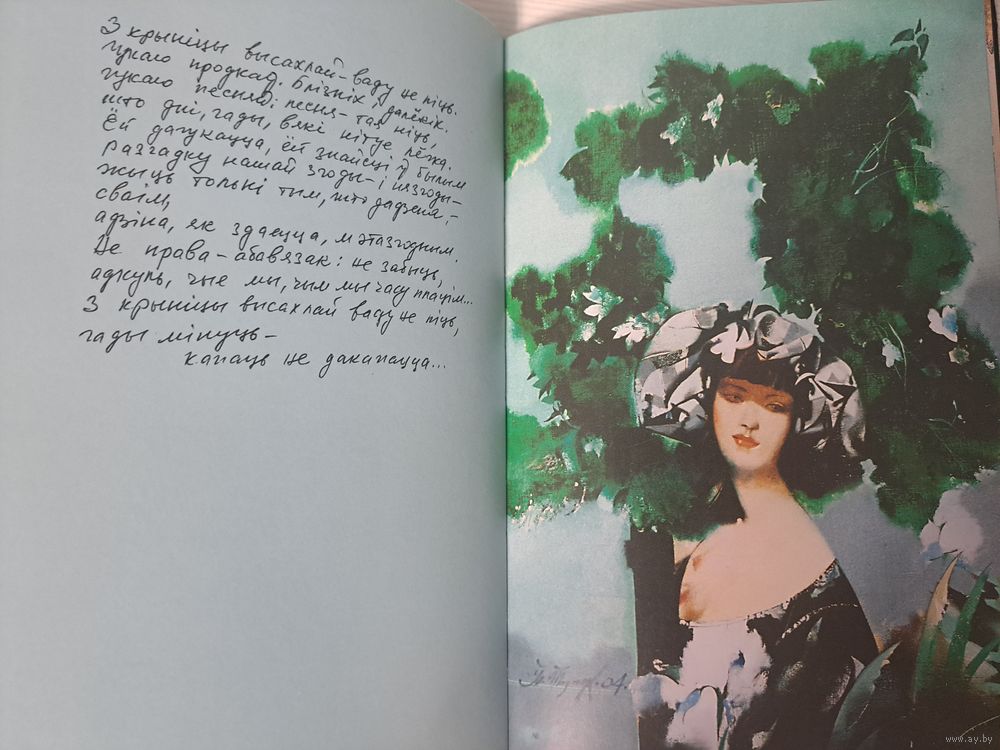 З крыніцы высахлай – ваду не піць.
Шукаю продкаў. Блізкіх, далёкіх.
Шукаю песню; песня – тая ніць,
што дні, гады, вякі нітуе лёгка.
Ёй дапукацца, ёй знайсці ў былым
Разгадку нашай згоды – і нязгоды –
жыць толькі тым, што дадзена, –
сваім,
адзіна, як здаецца, мэтазгодным.
Не права – абавязак: не забыць,
адкуль, чые мы, чым мы часу плацім...
З крыніцы высахлай ваду не піць,
гады мінуць –
капаць не дакапацца...
04.
www.ay.by